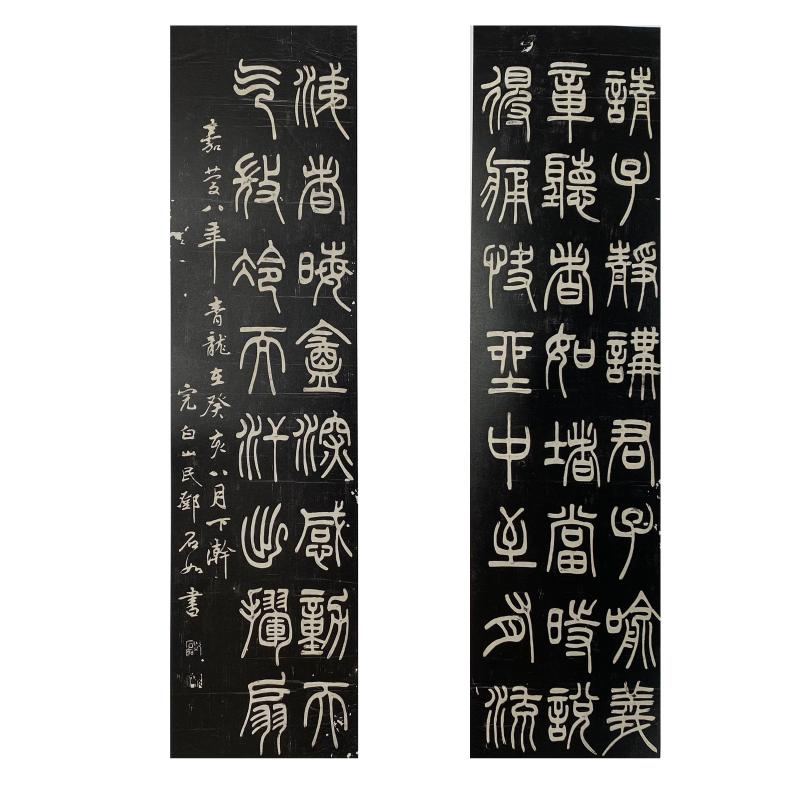 請子靜講君子喻義
章聽者如堵當時說
得痛快坐中至有流
涕者晦盦深感動天
气微冷而汗出揮扇
嘉慶八年青龍在癸亥八月下澣
完白山民鄧石如書